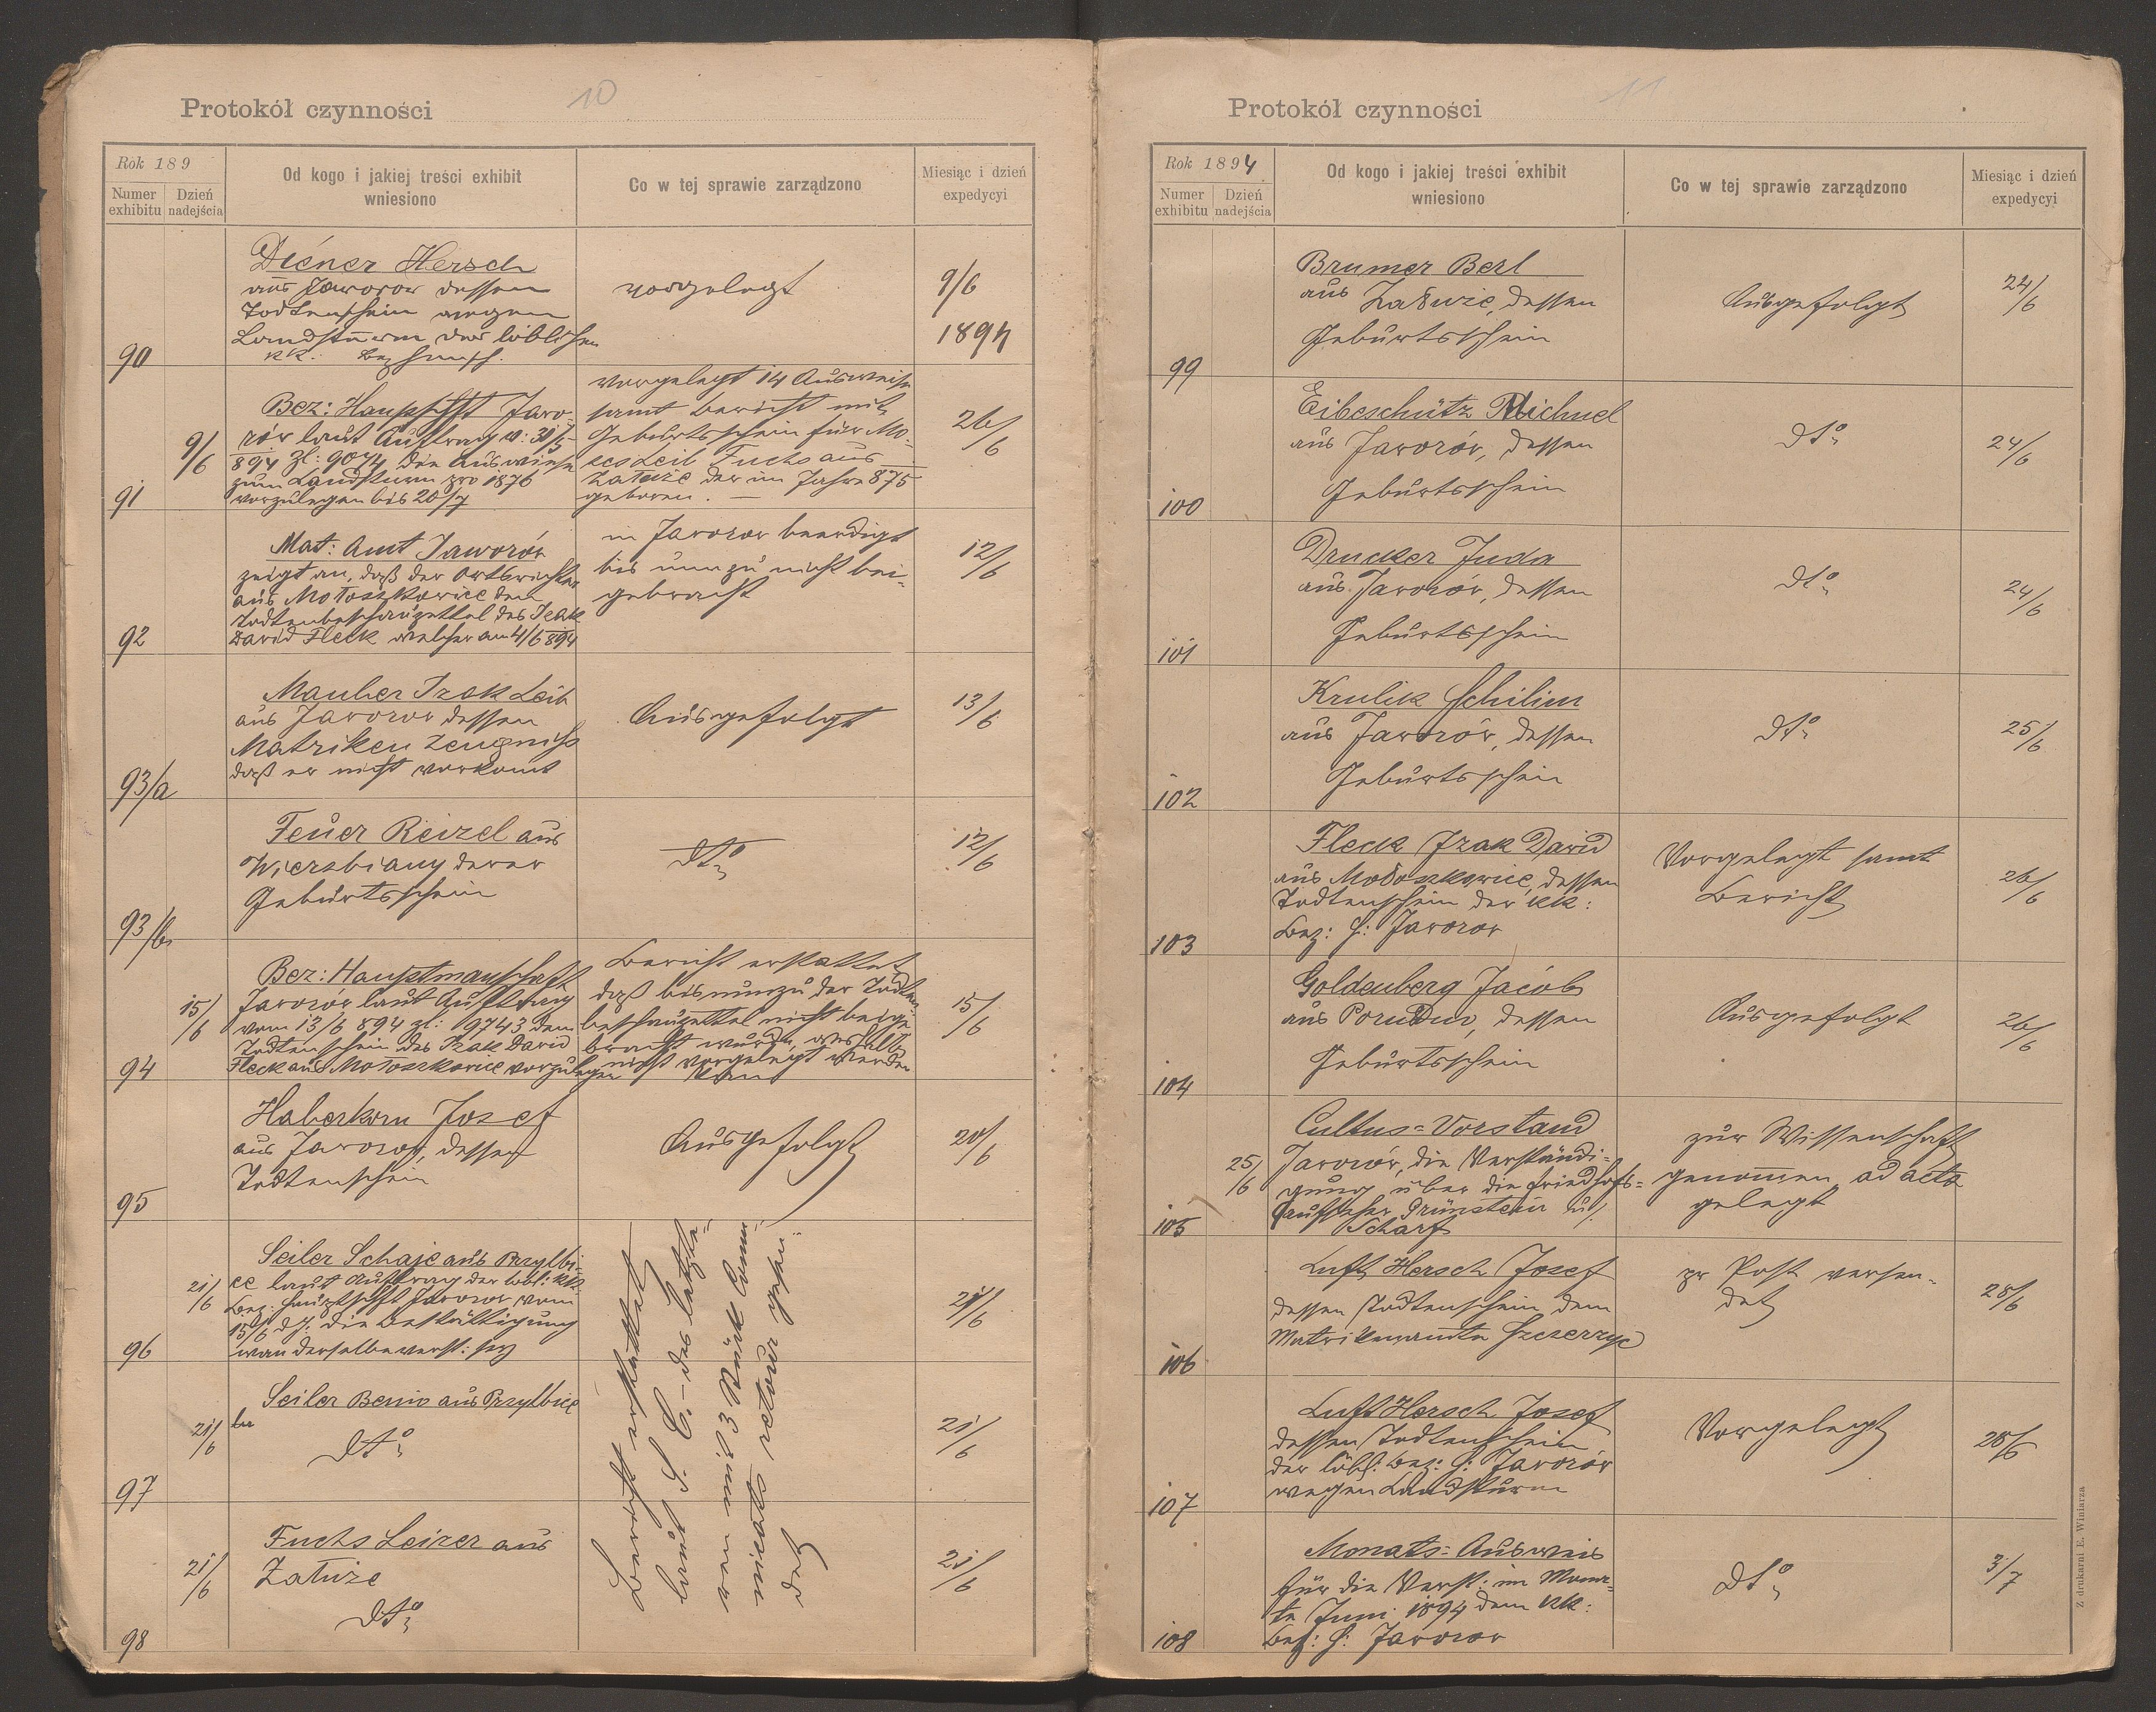 10
Protokół czynności
Rok 189
Numer exhibitu
Dzień nadejścia
Od kogo i jakiej treści exhibit wniesiono
Co w tej sprawie zarządzono
Miesiąc i dzień expedycyi
90
Diener Hersch
aus Jaworow dessen
Todtenschein wegen
Landsturm der löblichen
KK. Bez
vorgelegt
9/6
1894
91
9/6
Bez: Haupschft Jawo-
rów laut Auftrag v: 30/5
894 Zl: 9074 die Ausweise
zum Landsturm pro 1876
vorzulegen bis 20/7
vorgelegt 14 Ausweise
samt Bericht mit
Geburtsschein für Mo-
ses Leib Fuchs aus
Załuże der im Jahre 875
geboren. —
26/6
92
Mat: Amt Jaworów
zeigt an, daß der Ortsrichter
aus Mołoszkowice den
Todtenbeschauzettel des Izak
David Fleck welcher am 4/6 894
in Jaworow beerdigt
bis nun zu nicht bei-
gebracht
12/6
93/a
Mauber Izak Leib
aus Jaworow dessen
Matriken Zeugniss
daß er nicht vorkomt
Ausgefolgt
13/6
93/b
Feuer Reizel aus
Wierzbiany deren
Geburtsschein
dto
12/6
94
15/6
Bez: Hauptmanschaft
Jaworów laut Auftrag
vom 13/6 894 zl: 9743 den
Todtenschein des Izak David
Fleck aus Mołoszkowice vorzulegen
Bericht erstattet
daß bis nunzu der Todten-
beschauzettel nicht beige-
bracht wurde, weshalb
nicht vorgelegt werden
kann
15/6
95
Haberkorn Josef
aus Jaworow, dessen
Todtenschein
Ausgefolgt
20/6
96
21/6
Seiler Schaje aus Przylbi-
ce laut Auftrag der löbl: KK.
Bez: Hauptschft Jaworow vom
15/6 d.J. die Bestättigung
wan derselbe verst: sey
21/6
97
21/6
Seiler Benio aus Przylbice
dto
21/6
98
21/6
Fuchs Leizer aus
Załuże
dto
Bericht erstattet
laut
3 Stück Comu-
nicats retour gesen-
det
21/6
11
Protokół czynności
Rok 1894
Numer exhibitu
Dzień nadejścia
Od kogo i jakiej treści exhibit wniesiono
Co w tej sprawie zarządzono
Miesiąc i dzień expedycyi
99
Brumer Berl
aus Załuże, dessen
Geburtsschein
Ausgefolgt
24/6
100
Eibeschütz Michael
aus Jaworów, dessen
Geburtsschein
dto
24/6
101
Drucker Juda
aus Jaworów, dessen
Geburtsschein
dto
24/6
102
Krulik Schilim
aus Jaworów, dessen
Geburtsschein
dto
25/6
103
Fleck Izak David
aus Mołoszkowice, dessen
Todtenschein der KK:
Bez: H: Jaworow
Vorgelegt samt
Bericht
26/6
104
Goldenberg Jacób
aus Porudno, dessen
Geburtsschein
Ausgefolgt
26/6
105
25/6
Cultus=Vorstand
Jaworów, die Verständi-
gung über die Friedhofs=
aufseher Grünstein u/.
Scharf
zur Wissenschaft
genomen ad acta
gelegt
106
Luft Hersch Josef
dessen Todtenschein dem
Matrikenamte Szczerzyc
pr Post versen-
det
28/6
107
Luft Hersch Josef
dessen Todtenschein
der löbl: Bez: H: Jaworów
wegen Landsturm
Vorgelegt
28/6
108
Monats=Ausweis
für die Verst: im Mona-
te Juni 1894 dem KK:
Bez: H: Jaworow
dto
3/7
Z drukarni E. Winiarza